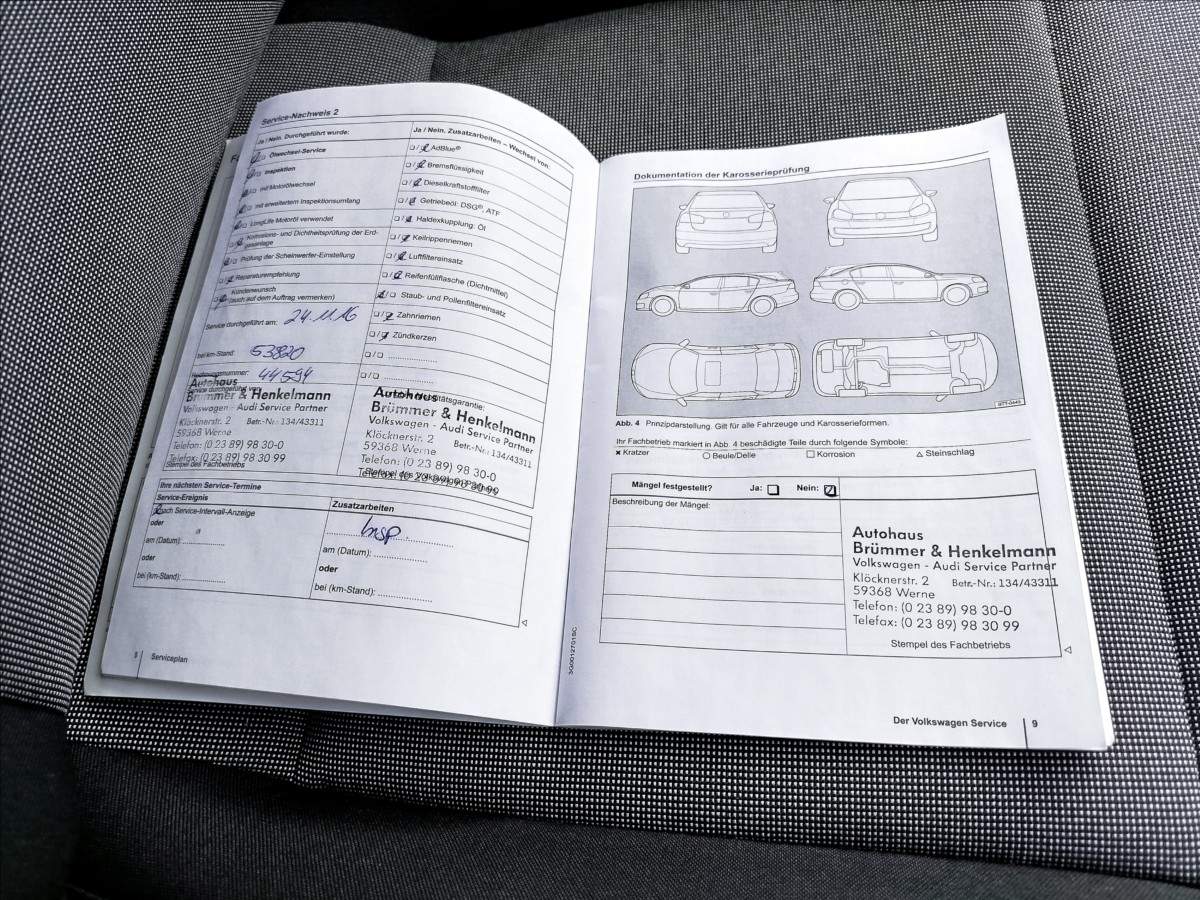 Service-Nachweis 2
Ja / Nein. Durchgeführt wurde:
Ölwechsel-Service
Inspektion
mit Motorölwechsel
mit erweitertem Inspektionsumfang
LongLife Motoröl verwendet
Korrosions- und Dichtheitsprüfung der Erd-
gasanlage
Prüfung der Scheinwerfer-Einstellung
Reparaturempfehlung
Kundenwunsch
(auch auf dem Auftrag vermerken)
Service durchgeführt am: 24.11.16
bei km-Stand: 53820
44594
Service durchgeführt von:
Autohaus
Brümmer & Henkelmann
Volkswagen - Audi Service Partner
Klöcknerstr. 2 Betr.-Nr.: 134/43311
59368 Werne
Telefon: (0 23 89) 98 30-0
Telefax: (0 23 89) 98 30 99
Stempel des Fachbetriebs
Ja / Nein. Zusatzarbeiten – Wechsel von:
AdBlue®
Bremsflüssigkeit
Dieselkraftstofffilter
Getriebeöl: DSG®, ATF
Haldexkupplung: Öl
Keilrippenriemen
Luftfiltereinsatz
Reifenfüllflasche (Dichtmittel)
Staub- und Pollenfiltereinsatz
Zahnriemen
Zündkerzen
Autohaus
Brümmer & Henkelmann
Volkswagen - Audi Service Partner
Klöcknerstr. 2 Betr.-Nr.: 134/43311
59368 Werne
Telefon: (0 23 89) 98 30-0
Telefax: (0 23 89) 98 30 99
Ihre nächsten Service-Termine
Service-Ereignis
nach Service-Intervall-Anzeige
oder
am (Datum):
oder
bei (km-Stand):
Zusatzarbeiten
Insp.
am (Datum):
oder
bei (km-Stand):
Serviceplan
Dokumentation der Karosserieprüfung
Abb. 4 Prinzipdarstellung. Gilt für alle Fahrzeuge und Karosserieformen.
Ihr Fachbetrieb markiert in Abb. 4 beschädigte Teile durch folgende Symbole:
× Kratzer ○ Beule/Delle □ Korrosion △ Steinschlag
Mängel festgestellt? Ja: Nein:
Beschreibung der Mängel:
Autohaus
Brümmer & Henkelmann
Volkswagen - Audi Service Partner
Klöcknerstr. 2 Betr.-Nr.: 134/43311
59368 Werne
Telefon: (0 23 89) 98 30-0
Telefax: (0 23 89) 98 30 99
Stempel des Fachbetriebs
3G0012701SC
Der Volkswagen Service 9